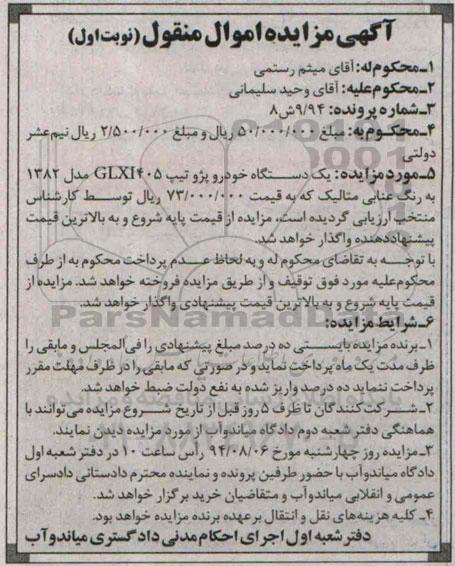 آگهی مزایده اموال منقول (نوبت اول)
۱ـ محکوم له: آقای میثم رستمی
۲ـ محکوم علیه: آقای وحید سلیمانی
۳ـ شماره پرونده: ۹/۹۴ش۸
۴ـ محکوم به: مبلغ ۵۰/۰۰۰/۰۰۰ ریال و مبلغ ۲/۵۰۰/۰۰۰ ریال نیم عشر
دولتی
۵ـ مورد مزایده: یک دستگاه خودرو پژو تیپ GLXI۴۰۵ مدل ۱۳۸۲
به رنگ عنابی متالیک که به قیمت ۷۳/۰۰۰/۰۰۰ ریال توسط کارشناس
منتخب ارزیابی گردیده است، مزایده از قیمت پایه شروع و به بالاترین قیمت
پیشنهاددهنده واگذار خواهد شد.
با توجه به تقاضای محکوم له و به لحاظ عدم پرداخت محکوم به از طرف
محکوم علیه مورد فوق توقیف و از طریق مزایده فروخته خواهد شد. مزایده از
قیمت پایه شروع و به بالاترین قیمت پیشنهادی واگذار خواهد شد.
۶ـ شرایط مزایده:
۱ـ برنده مزایده بایستی ده درصد مبلغ پیشنهادی را فی المجلس و مابقی را
ظرف مدت یک ماه پرداخت نماید و در صورتی که مابقی را در ظرف مهلت مقرر
پرداخت ننماید ده درصد واریز شده به نفع دولت ضبط خواهد شد.
۲ـ شرکت کنندگان تا ظرف ۵ روز قبل از تاریخ شروع مزایده می توانند با
هماهنگی دفتر شعبه دوم دادگاه میاندوآب از مورد مزایده دیدن نمایند.
۳ـ مزایده روز چهارشنبه مورخ ۹۴/۰۸/۰۶ رأس ساعت ۱۰ در دفتر شعبه اول
دادگاه میاندوآب با حضور طرفین پرونده و نماینده محترم دادستانی دادسرای
عمومی و انقلابی میاندوآب و متقاضیان خرید برگزار خواهد شد.
۴ـ کلیه هزینه های نقل و انتقال بر عهده برنده مزایده خواهد بود.
دفتر شعبه اول اجرای احکام مدنی دادگستری میاندوآب
ParsNamadData